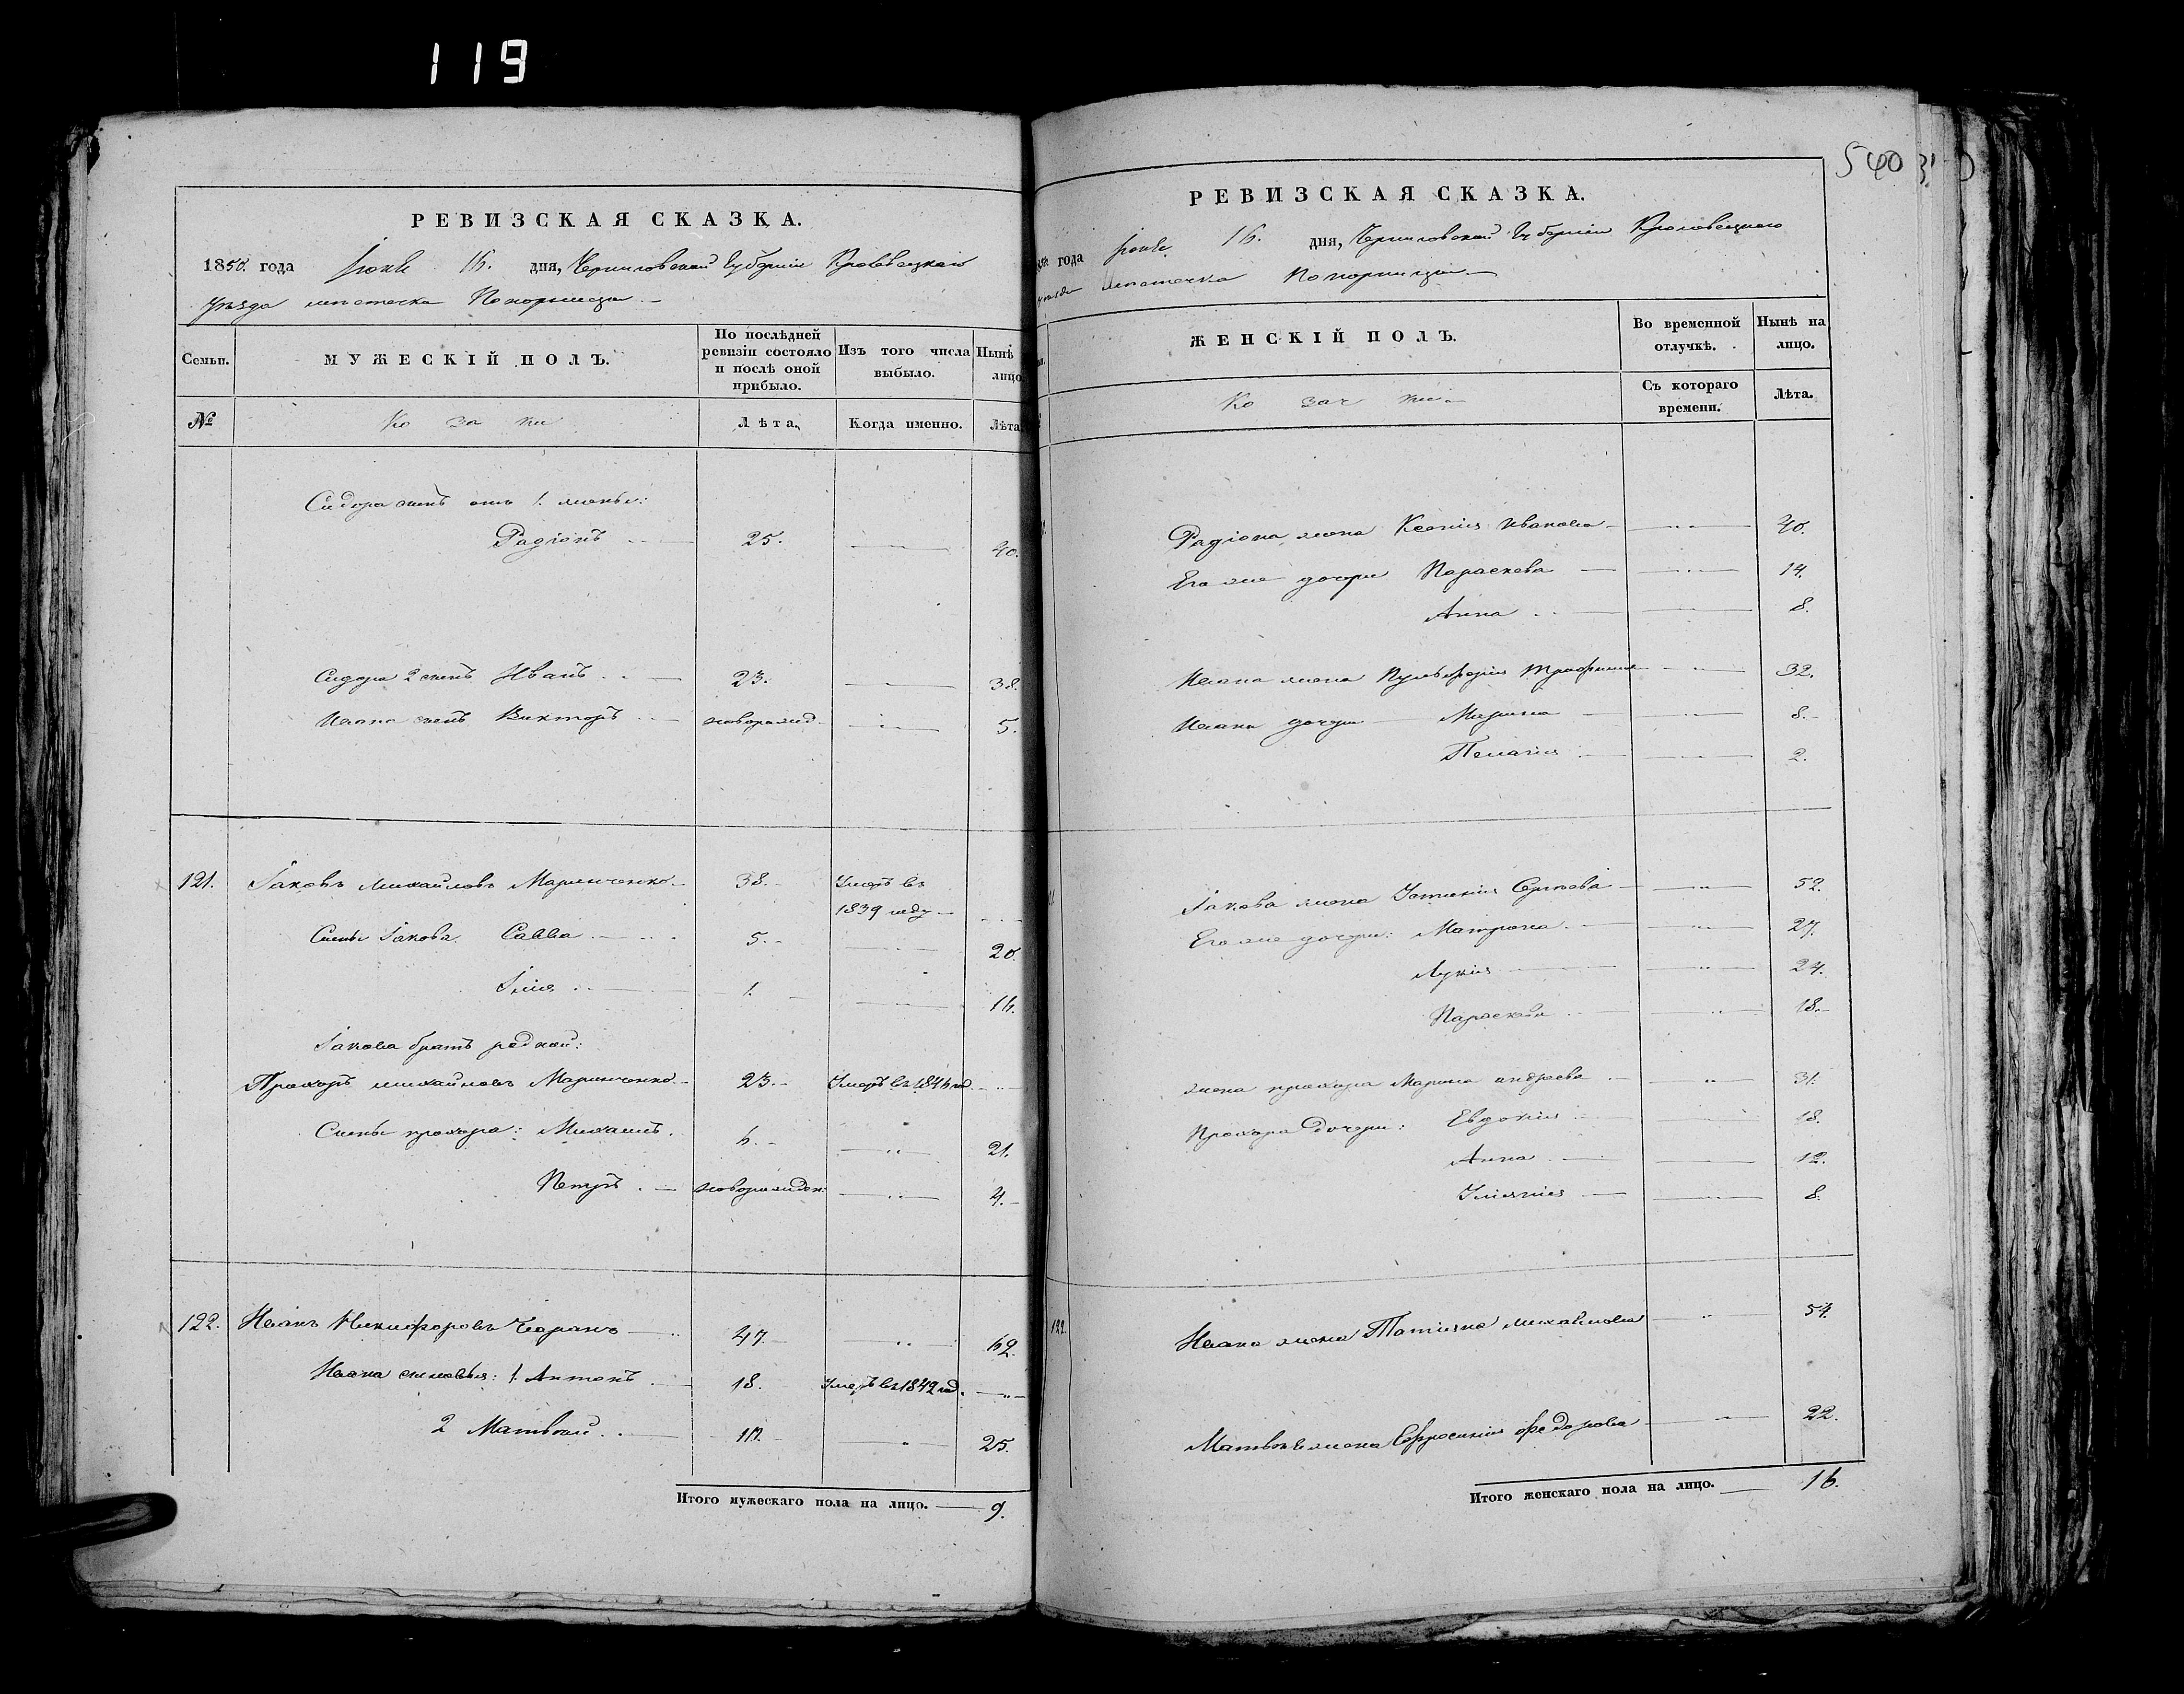 119
540
РЕВИЗСКАЯ СКАЗКА.
1850. года Іюня 16. дня, Черниговской Губерніи Кролевецкаго
Уѣзда мѣстечка Понорницы
Семьи. МУЖЕСКІЙ ПОЛЪ. По послѣдней ревизіи состояло и послѣ оной прибыло. Изъ того числа выбыло. Нынѣ лицо
№ Ко за ки Лѣта. Когда именно. Лѣта
Сидора сынъ отъ 1. жены:
Радіонъ 25. 40.
Сидора 2 сынъ Иванъ 23. 38.
Ивана сынъ Викторъ новорожд. 5.
121. Іаковъ Михайловъ Маринченко 38. Умеръ въ
1839 году
Сыны Іакова Савва 5. 20.
Ілія 1. 16.
Іакова братъ родной:
Прохоръ михайловъ Маринченко 23. Умеръ въ 1846 год.
Сыны прохора: Михаилъ. 6. 21.
Петръ новорожден. 4.
122. Иванъ Никифоровъ 47. 62.
Ивана сыновья: 1. Антонъ 18. Умеръ въ 1842 год.
2 Матвѣй 10. 25.
Итого мужескаго пола на лицо. 9.
РЕВИЗСКАЯ СКАЗКА.
года Іюня 16. дня, Черниговской Губерніи Кролевецкаго
Уѣзда мѣстечка Понорницы
ЖЕНСКІЙ ПОЛЪ. Во временной отлучкѣ. Нынѣ на лицо.
Ко зач ки Съ котораго времени. Лѣта.
Радіона жена Ксенія Иванова 40.
Его же дочери Параскева 14.
Анна 8.
Ивана жена Пульхерія 32.
Ивана дочери Марина 8.
Пелагія 2.
Іакова жена Устинія Сергѣева 52.
Его же дочери: Матрона 27.
Лукія 24.
Параскева 18.
жена прохора Марина андреева 31.
Прохора дочери: Евдокія 18.
Анна 12.
Уліянія 8.
122. Ивана жена Татіяна михайлова 54.
Матвѣя жена Ефросинія Федорова 22.
Итого женскаго пола на лицо. 16.